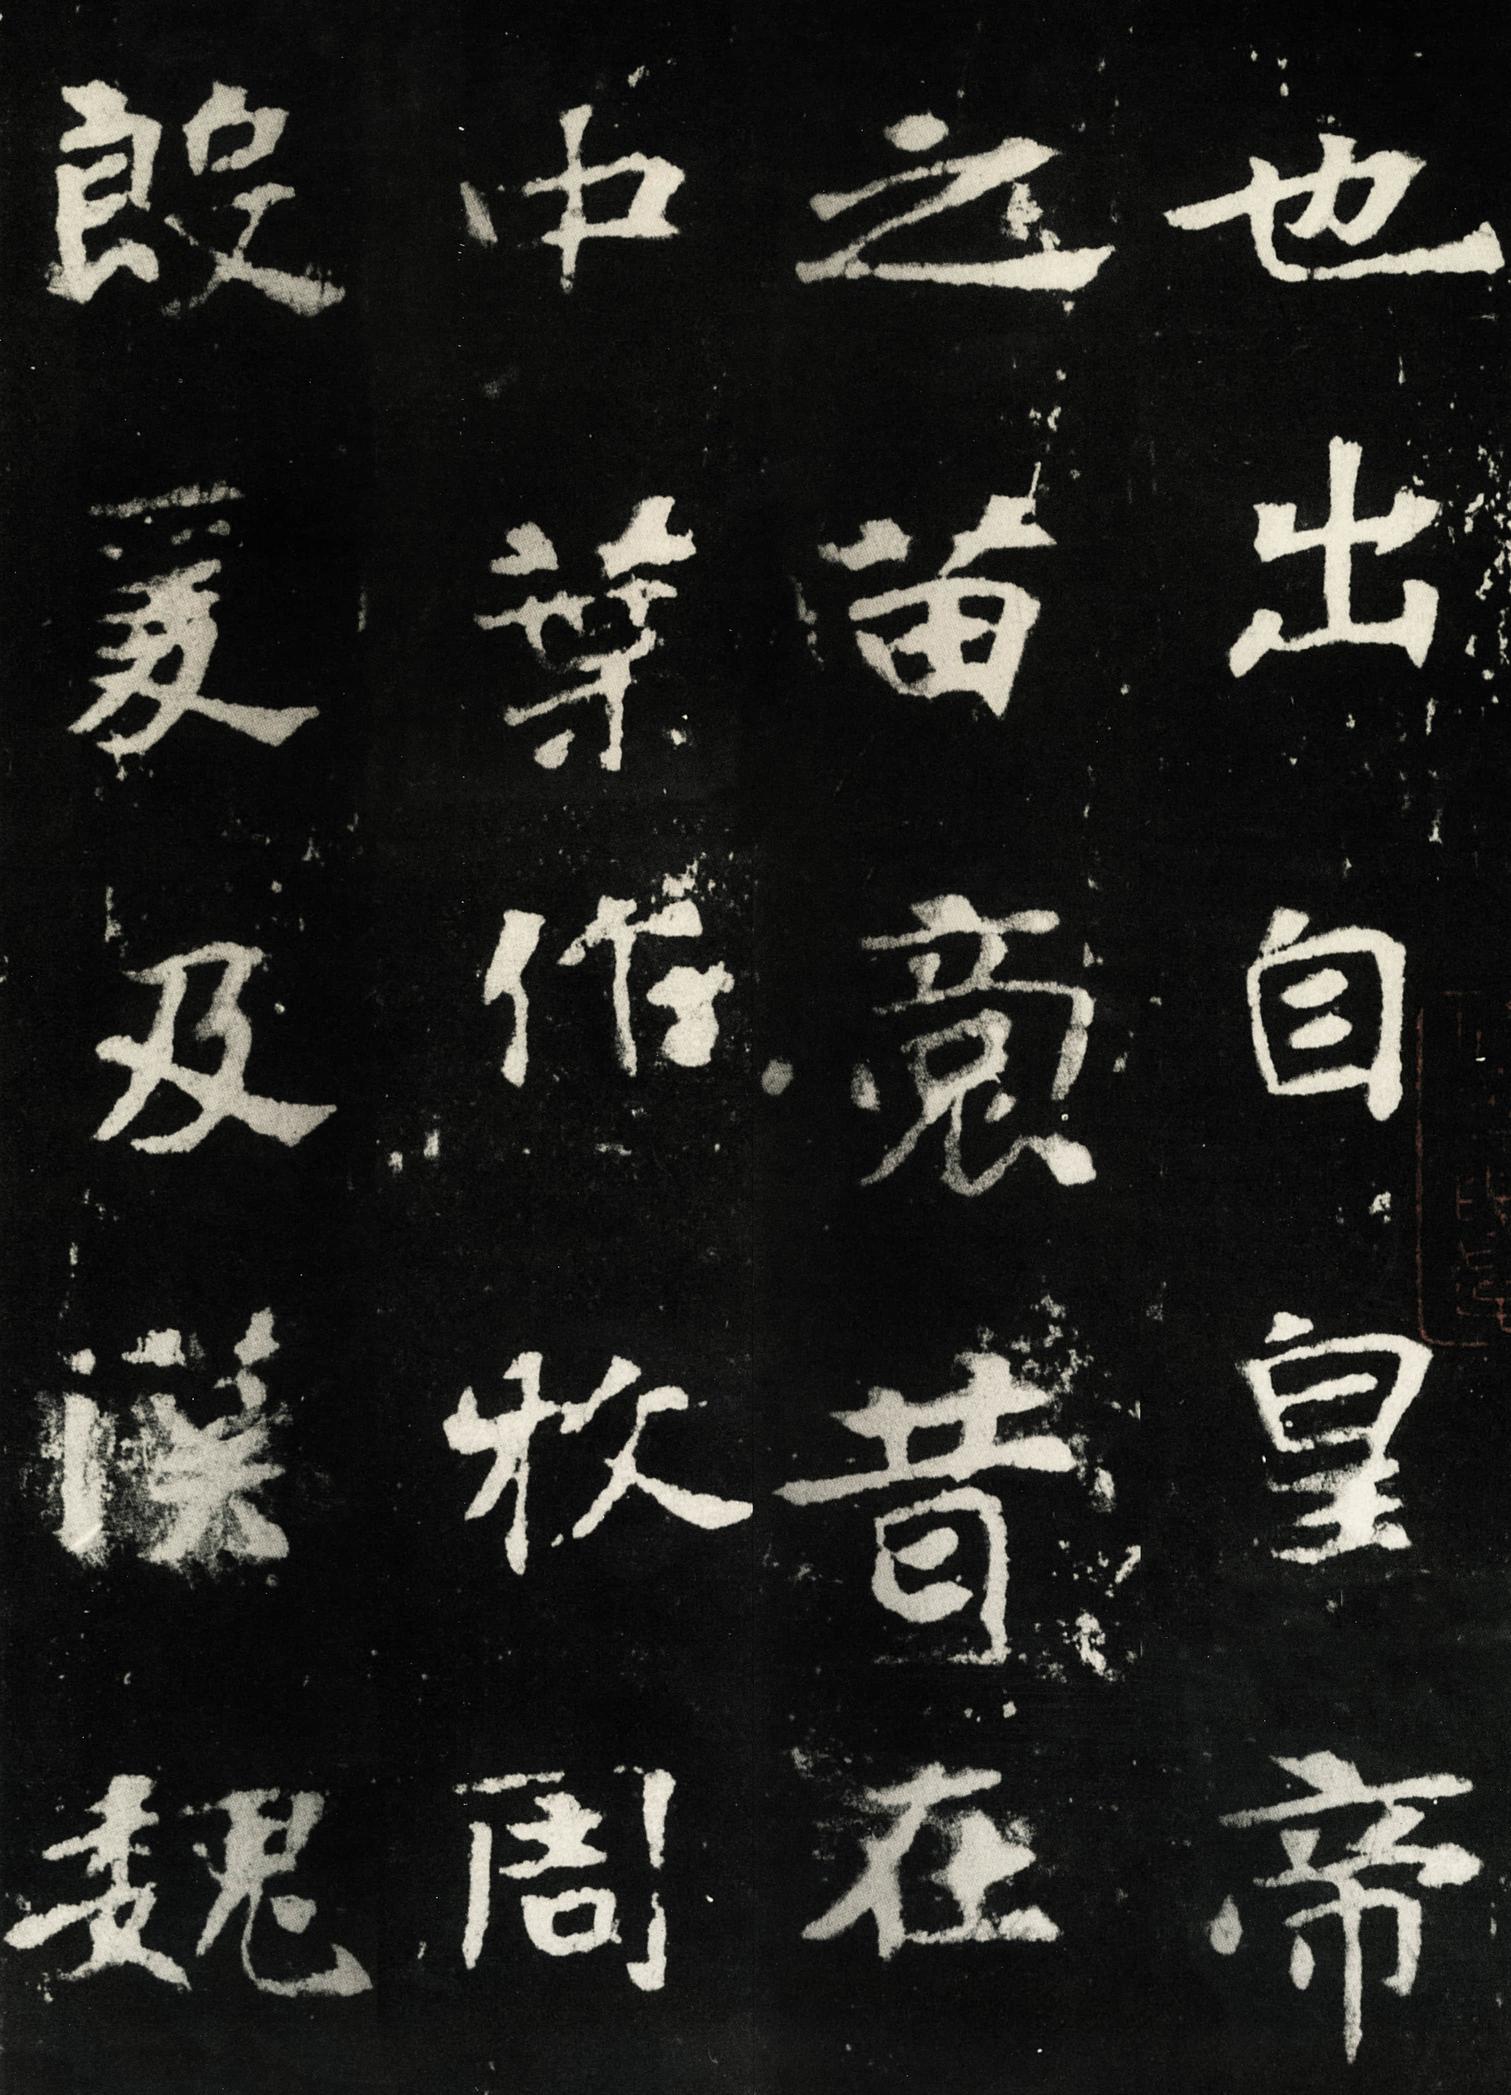 也出自皇帝
之苗裔昔在
中葉作牧周
殷爰及漢魏